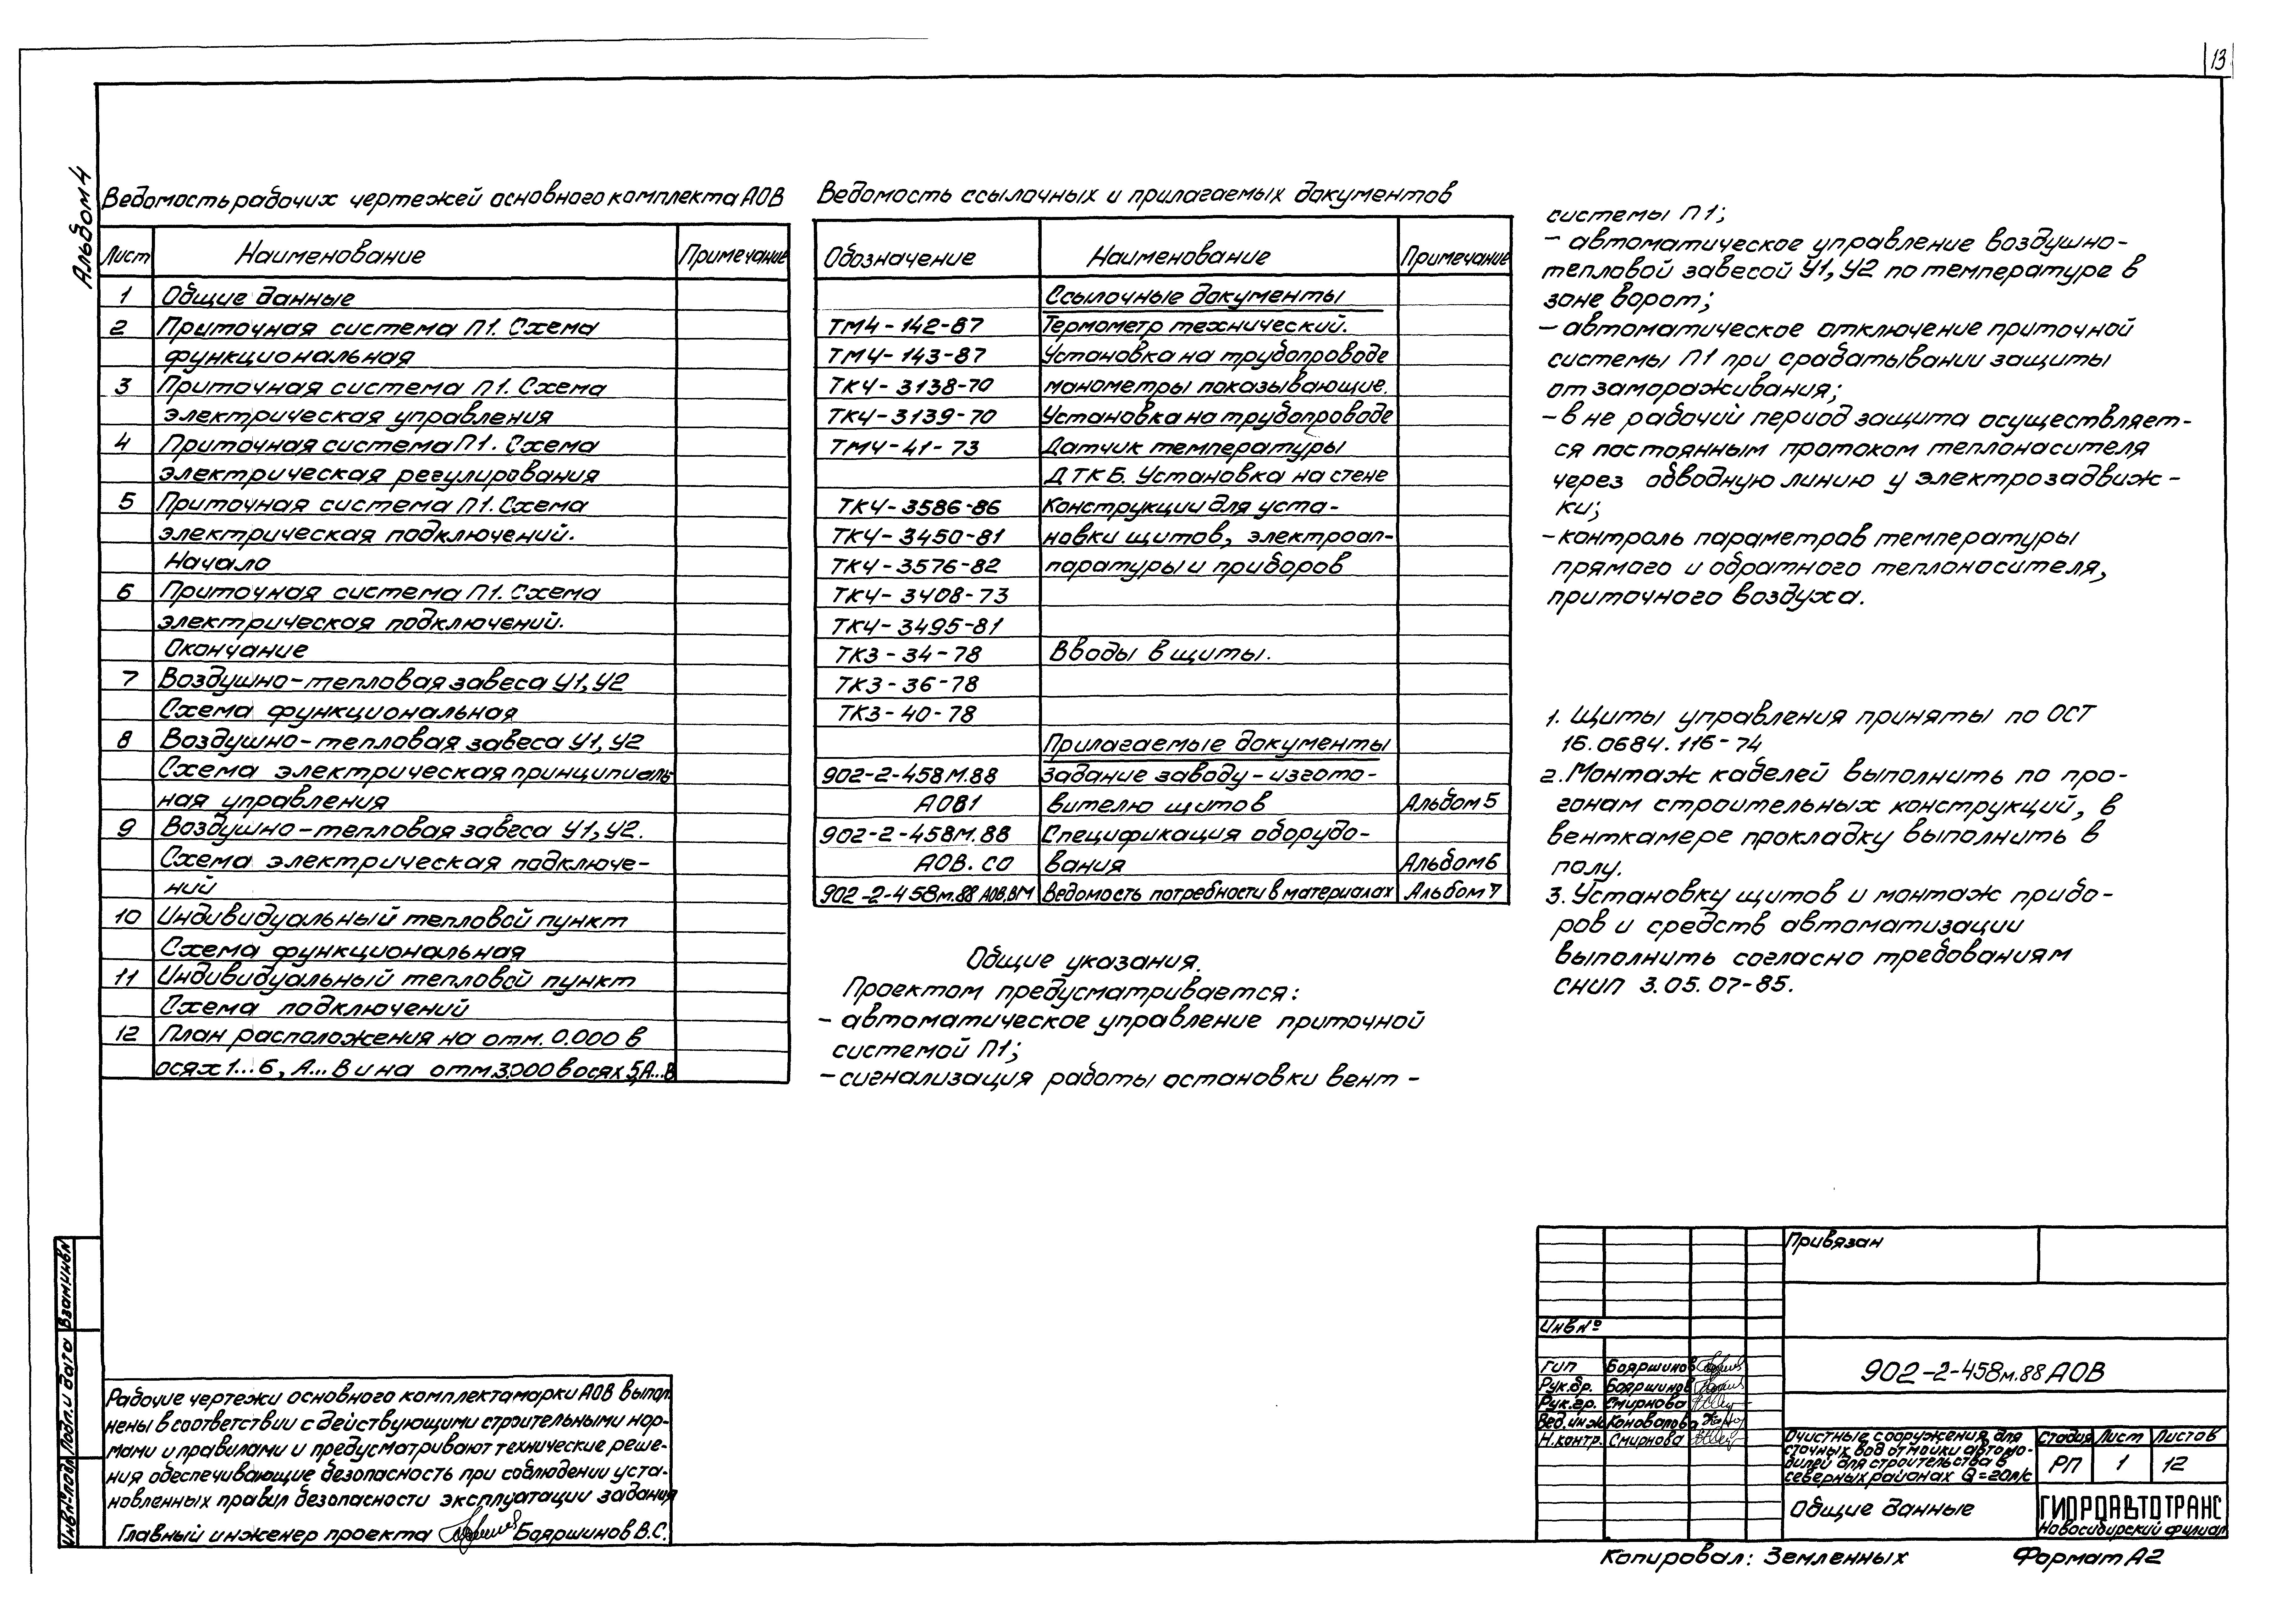 13
Альбом 4
Ведомость рабочих чертежей основного комплекта АОВ
Лист Наименование Примечание
1 Общие данные
2 Приточная система П1. Схема
функциональная
3 Приточная система П1. Схема
электрическая управления
4 Приточная система П1. Схема
электрическая регулирования
5 Приточная система П1. Схема
электрическая подключений.
Начало
6 Приточная система П1. Схема
электрическая подключений.
Окончание
7 Воздушно-тепловая завеса У1, У2
Схема функциональная
8 Воздушно-тепловая завеса У1, У2
Схема электрическая принципиаль
ная управления
9 Воздушно-тепловая завеса У1, У2.
Схема электрическая подключе-
ний
10 Индивидуальный тепловой пункт
Схема функциональная
11 Индивидуальный тепловой пункт
Схема подключений
12 План расположения на отм. 0.000 в
осях 1...6, А...В и на отм 3.000 в осях 5, А...В
Ведомость ссылочных и прилагаемых документов
Обозначение Наименование Примечание
Ссылочные документы
ТМ4-142-87 Термометр технический.
ТМ4-143-87 Установка на трубопроводе
ТК4-3138-70 манометры показывающие.
ТК4-3139-70 Установка на трубопроводе
ТМ4-41-73 Датчик температуры
ДТКБ. Установка на стене
ТК4-3586-86 Конструкции для уста-
ТК4-3450-81 новки щитов, электроап-
ТК4-3576-82 паратуры и приборов
ТК4-3408-73
ТК4-3495-81
ТК3-34-78 Вводы в щиты.
ТК3-36-78
ТК3-40-78
Прилагаемые документы
902-2-458м.88 задание заводу-изгото-
АОВ1 вителю щитов Альбом 5
902-2-458м.88 Спецификация оборудо-
АОВ.СО вания Альбом 6
902-2-458м.88 АОВ.ВМ Ведомость потребности в материалах Альбом 7
Общие указания.
Проектом предусматривается:
- автоматическое управление приточной
системой П1;
- сигнализация работы остановки вент-
системы П1;
- автоматическое управление воздушно-
тепловой завесой У1, У2 по температуре в
зоне ворот;
- автоматическое отключение приточной
системы П1 при срабатывании защиты
от замораживания;
- в не рабочий период защита осуществляет-
ся постоянным протоком теплонасителя
через обводную линию у электрозадвиж-
ки;
- контроль параметров температуры
прямого и обратного теплоносителя,
приточного воздуха.
1. Щиты управления приняты по ОСТ
16.0684.116-74
2. Монтаж кабелей выполнить по про-
гонам строительных конструкций, в
венткамере прокладку выполнить в
полу.
3. Установку щитов и монтаж прибо-
ров и средств автоматизации
выполнить согласно требованиям
СНИП 3.05.07-85.
Инв.№подл. Подп. и дата Взам.инв.№
Рабочие чертежи основного комплекта марки АОВ выпол
нены в соответствии с действующими строительными нор-
мами и правилами и предусматривают технические реше-
ния обеспечивающие безопасность при соблюдении уста-
новленных правил безопасности эксплуатации задания
Главный инженер проекта Бояршинов В.С.
Привязан
Инв №
ГИП Бояршинов
Рук.бр. Бояршинов
Рук.гр. Смирнова
Вед.инж Коновалова
Н.контр. Смирнова
902-2-458м.88 АОВ
Очистные сооружения для
сточных вод от мойки автомо-
билей для строительства в
северных районах Q=20л/с
Стадия Лист Листов
РП 1 12
Общие данные
ГИПРОАВТОТРАНС
Новосибирский филиал
Копировал: Земленных Формат А2